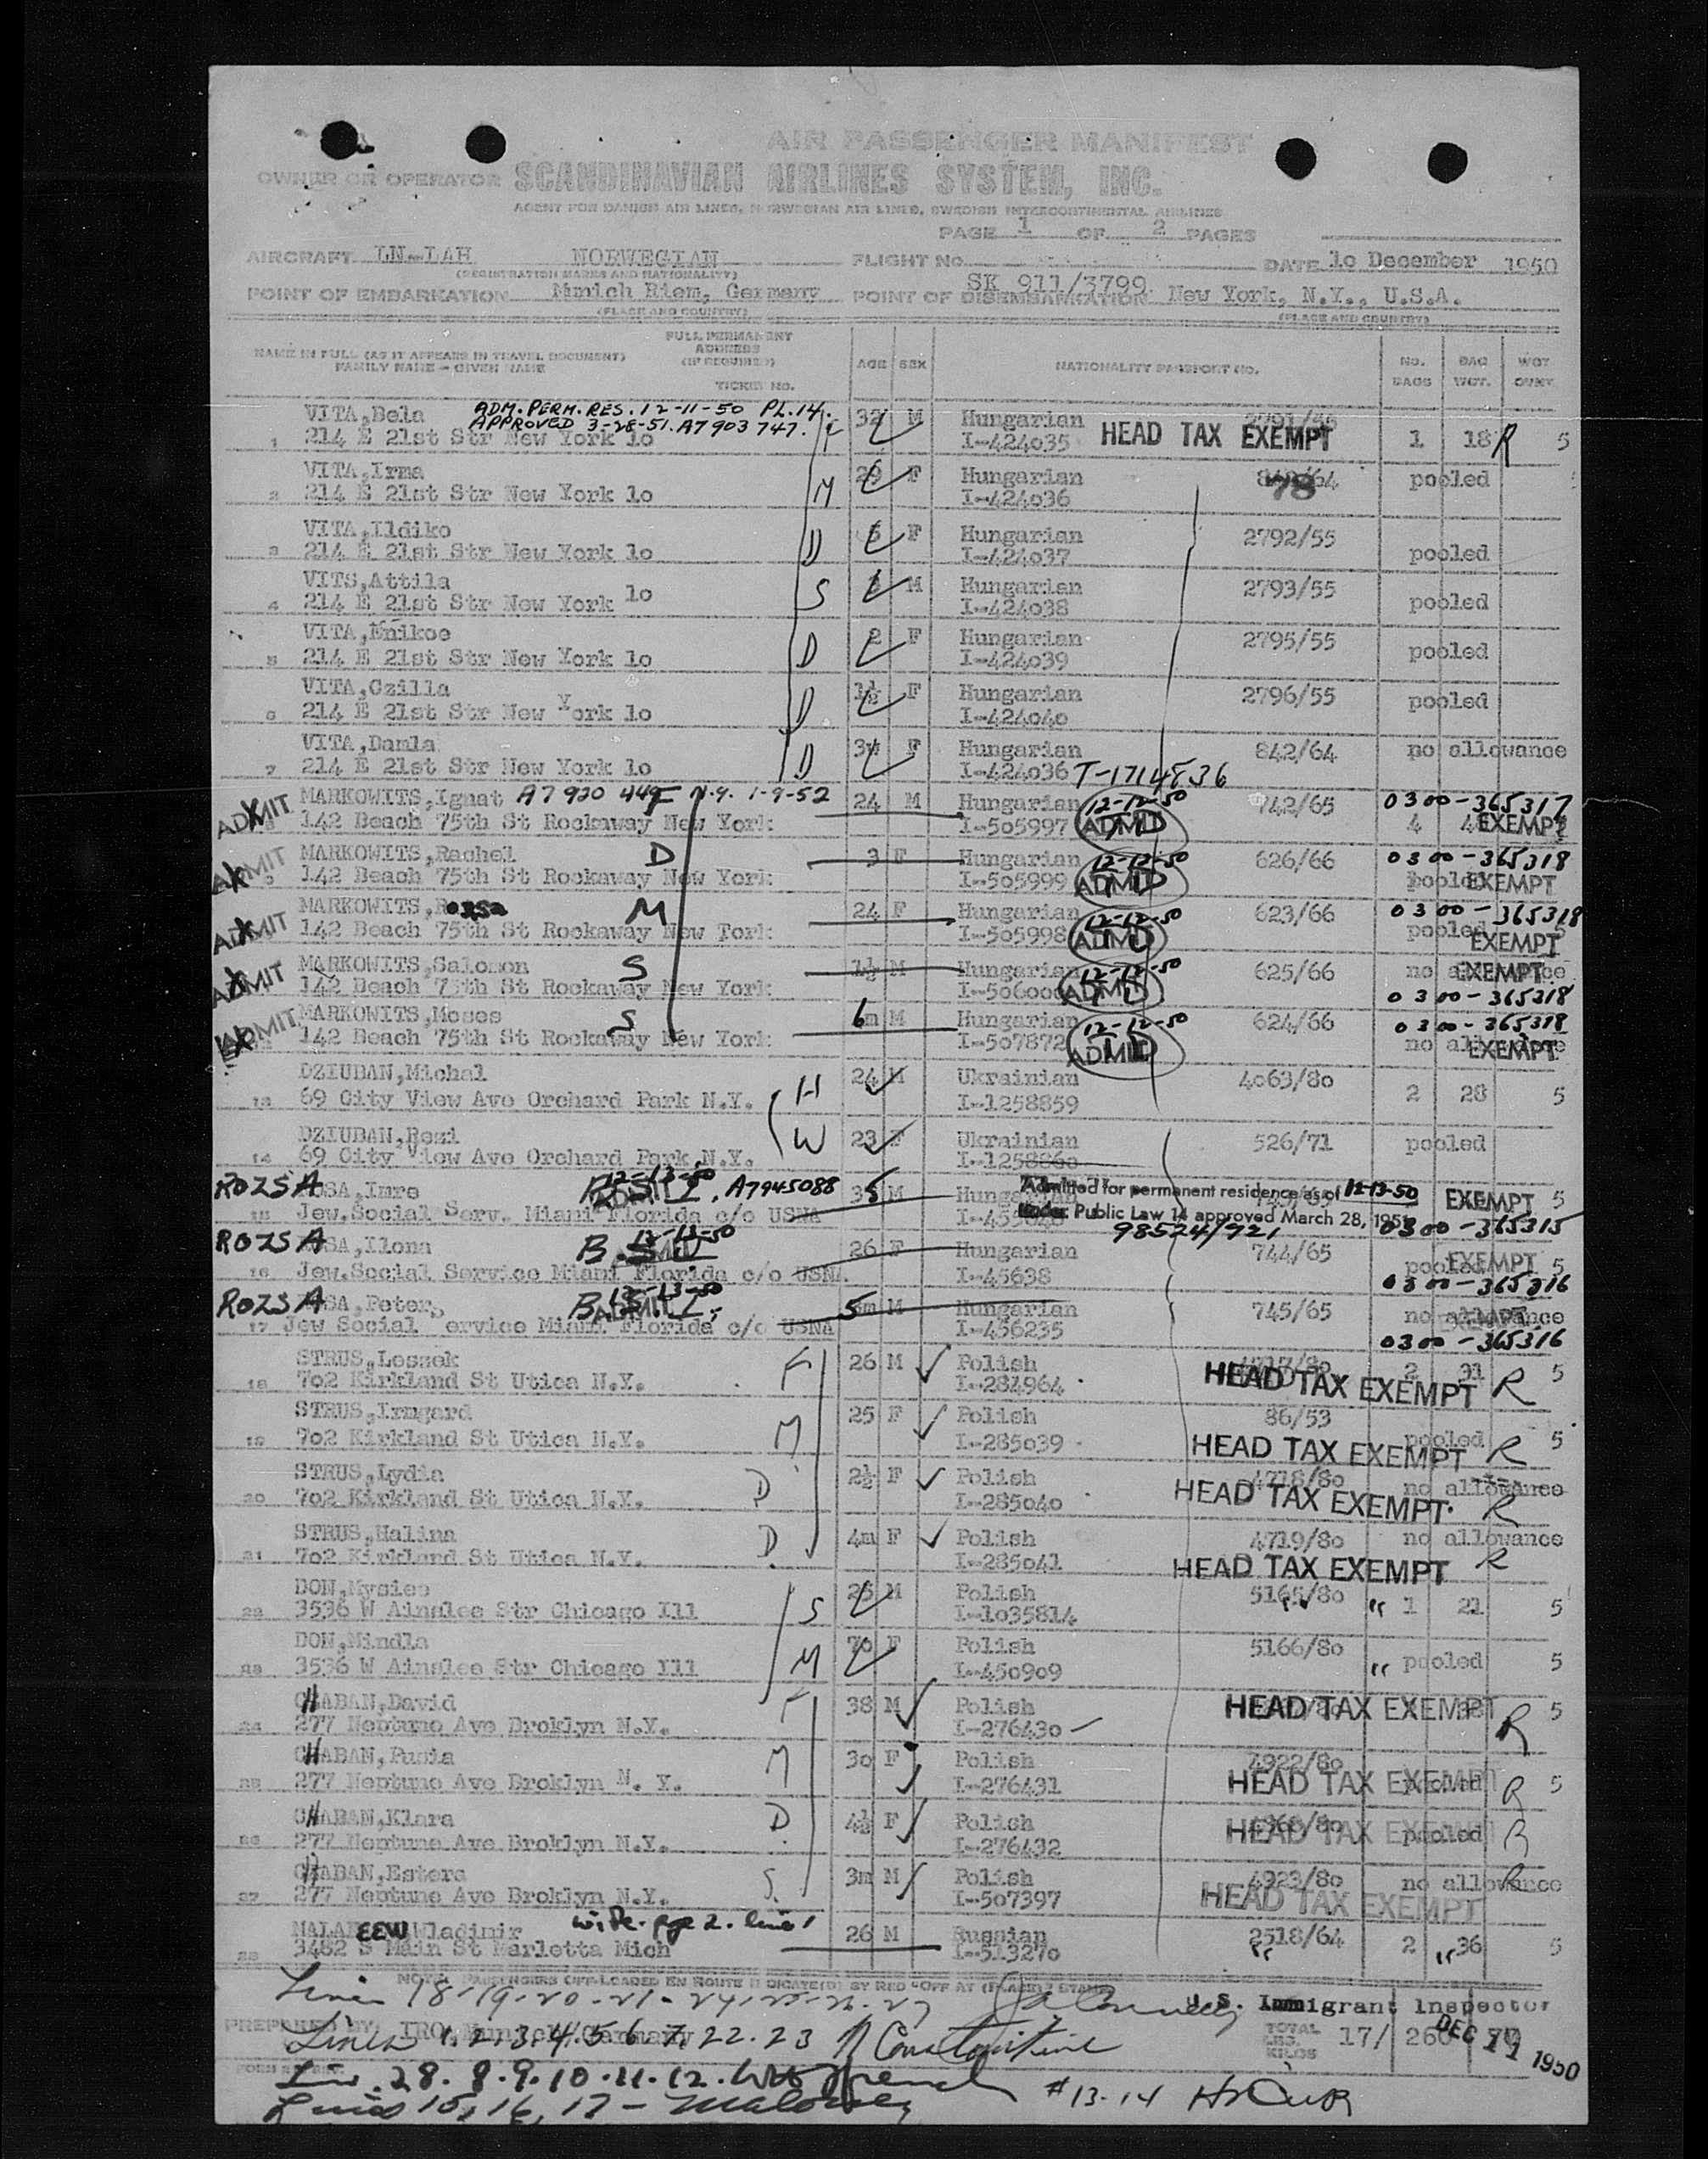 AIR PASSENGER MANIFEST
OWNER OR OPERATOR SCANDINAVIAN AIRLINES SYSTEM, INC.
AGENT FOR DANISH AIR LINES, NORWEGIAN AIR LINES, SWEDISH INTERCONTINENTAL AIRLINES
PAGE 1 OF 2 PAGES
AIRCRAFT LN-LAH NORWEGIAN FLIGHT No. SK 911/3799 DATE 10 December 1950
(REGISTRATION MARKS AND NATIONALITY)
POINT OF EMBARKATION Munich Riem, Germany POINT OF DISEMBARKATION New York, N.Y., U.S.A.
(PLACE AND COUNTRY) (PLACE AND COUNTRY)
NAME IN FULL (AS IT APPEARS IN TRAVEL DOCUMENT) FAMILY NAME - GIVEN NAME FULL PERMANENT ADDRESS (IF REQUIRED) TICKET NO. AGE SEX NATIONALITY PASSPORT NO. NO. BAGS BAG WGT.
VITA,Bela ADM. PERM. RES. 12-11-50 PL. 14. 32 M Hungarian
APPROVED 3-28-51. A7903747.
1 214 E 21st Str New York lo I-424o35 HEAD TAX EXEMPT 1 18 R 5
VITA,Irma 29 F Hungarian pooled
2 214 E 21st Str New York lo M I-424o36 78
VITA,Ildiko 5 F Hungarian 2792/55
3 214 E 21st Str New York lo D I-424o37 pooled
VITS,Attila M Hungarian 2793/55
4 214 E 21st Str New York lo S I-424o38 pooled
VITA,Enikoe 2 F Hungarian 2795/55
5 214 E 21st Str New York lo D I-424o39 pooled
VITA,Czilla 1½ F Hungarian 2796/55
6 214 E 21st Str New York lo D I-424o4o pooled
VITA,Damla F Hungarian 842/64 no allowance
7 214 E 21st Str New York lo D I-424o36 T-1714836
ADMIT MARKOWITS,Ignat N.Y. 1-9-52 24 M Hungarian 12-12-50 742/65 0300-365317
142 Beach 75th St Rockaway New York I-505997 ADMID 4 EXEMPT
ADMIT MARKOWITS,Rachel D 3 F Hungarian 12-12-50 626/66 0300-365318
142 Beach 75th St Rockaway New York I-505999 ADMID pooled EXEMPT
ADMIT MARKOWITS,Rozsa M 24 F Hungarian 12-12-50 623/66 0300-365318
142 Beach 75th St Rockaway New York I-505998 ADMID pooled 5 EXEMPT
ADMIT MARKOWITS,Salomon S 1½ M Hungarian 12-12-50 625/66 no allowance EXEMPT
142 Beach 75th St Rockaway New York ADMID 0300-365318
ADMIT MARKOWITS,Moses S 6m M Hungarian 12-12-50 624/66 0300-365318
142 Beach 75th St Rockaway New York I-507872 ADMID no allowance EXEMPT
DZIUBAN,Michal H 24 M Ukrainian 4o63/8o
13 69 City View Ave Orchard Park N.Y. I-1258859 2 28 5
DZIUBAN,Rozi W 23 F Ukrainian 526/71 pooled
14 69 City View Ave Orchard Park N.Y. I-125886o
ROZSA ,Imre 12-13-50 A7945088 35 M Admitted for permanent residence as of 12-13-50 EXEMPT 5
15 Jew.Social Serv. Miami Florida c/o USNA Under Public Law 14 approved March 28, 1951 0300-365315
98524/721
ROZSA ,Ilona 12-13-50 26 F Hungarian 744/65 pooled EXEMPT 5
16 Jew.Social Service Miami Florida c/o USNA I-45638 0300-365316
ROZSA ,Peter 12-13-50 5m M Hungarian 745/65 no allowance
17 Jew Social ervice Miami Florida c/o USNA I-456235 0300-365316
STRUS,Leszek F 26 M Polish 2 31
18 7o2 Kirkland St Utica N.Y. I-284964 HEAD TAX EXEMPT R 5
STRUS,Irmgard 25 F Polish 86/53
19 7o2 Kirkland St Utica N.Y. M I-285o39 HEAD TAX EXEMPT pooled R 5
STRUS,Lydia D 2½ F Polish 4718/8o no allowance
20 7o2 Kirkland St Utica N.Y. I-285o4o HEAD TAX EXEMPT R
STRUS,Halina D 4m F Polish 4719/8o no allowance
21 7o2 Kirkland St Utica N.Y. I-285o41 HEAD TAX EXEMPT R
DON,Mysiee M Polish 5165/8o " 1 21 5
22 3536 W Ainslee Str Chicago Ill S I-1o35814
DON,Mindla 7o F Polish 5166/8o
23 3536 W Ainslee Str Chicago Ill M I-45o9o9 " pooled 5
CHABAN,David F 38 M Polish HEAD TAX EXEMPT 5
24 277 Neptune Ave Broklyn N.Y. I-27643o R
CHABAN,Pusia M 3o F Polish 4922/8o
25 277 Neptune Ave Broklyn N. Y. I-276431 HEAD TAX EXEMPT R 5
CHABAN,Klara D 4½ F Polish HEAD TAX EXEMPT pooled R
26 277 Neptune Ave Broklyn N.Y. I-276432
CHABAN,Estera S. 3m M Polish 4923/8o no allowance R
27 277 Neptune Ave Broklyn N.Y. I-5o7397 HEAD TAX EXEMPT
MALAEEW,Wladimir wife. pge 2. line 1 26 M Russian 2518/64 2 36 5
28 3482 S Main St Marletta Mich I-51327o " "
NOTE: PASSENGERS OFF-LOADED EN ROUTE INDICATE(D) BY RED "OFF AT (PLACE)" STAMP
Lines 18-19-20-21-24-25-26-27 U.S. Immigrant Inspector
PREPARED BY: IRO, Munich, Germany TOTAL LBS. KILOS 17/
Lines 1.2.3.4.5.6.7.22.23 DEC 11 1950
Lin. 28.8.9.10.11.12. #13-14
Lines 15, 16, 17 -